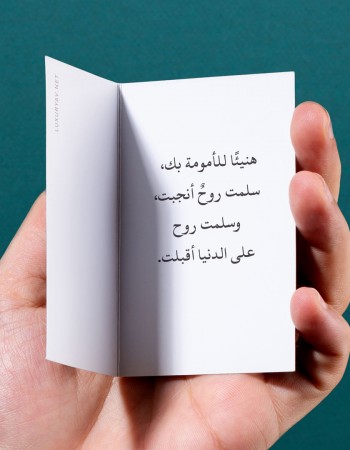 هنيئًا للأمومة بك،
سلمت روحٌ أنجبت،
وسلمت روح
على الدنيا أقبلت.
LUXURYAY.NET